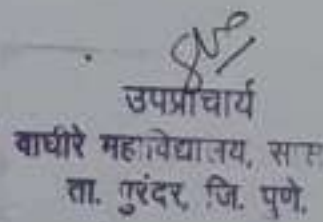 उपप्राचार्य
वाघीरे महाविद्यालय,
ता. पुरंदर, जि. पुणे.